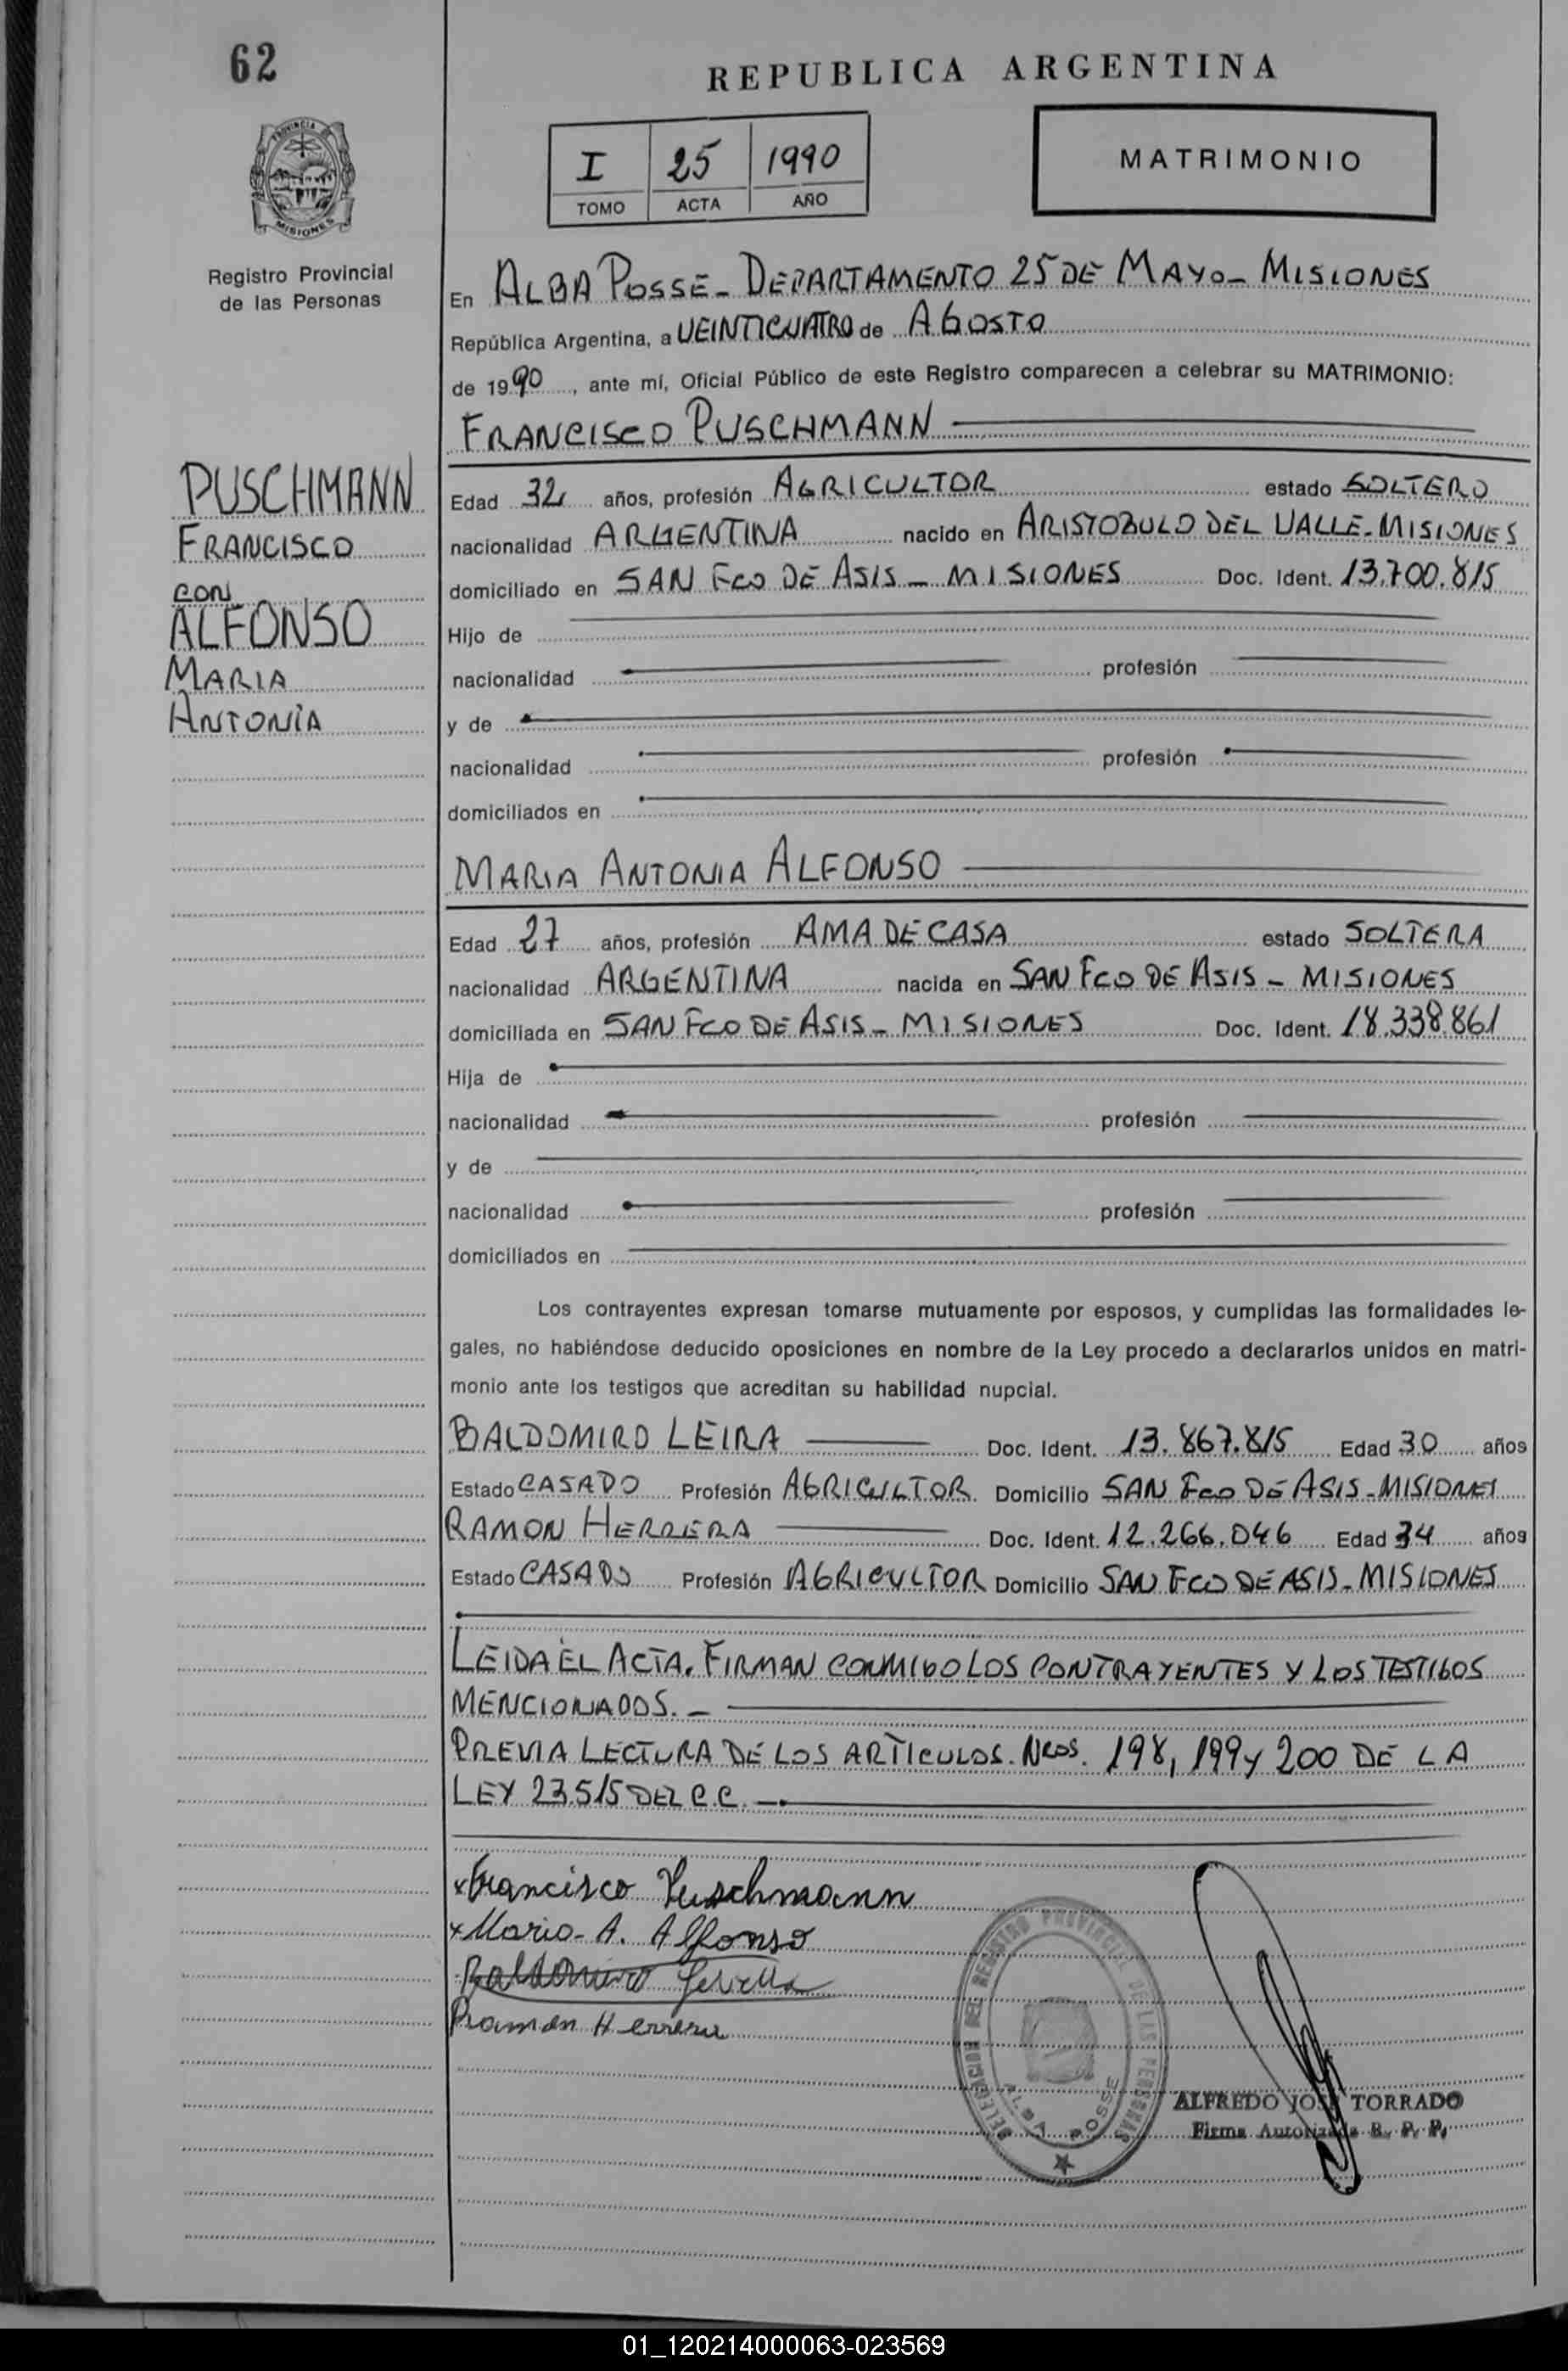 62
REPUBLICA ARGENTINA
I 25 1990
TOMO ACTA AÑO
MATRIMONIO
PROVINCIA DE
MISIONES
Registro Provincial
de las Personas
En ALBA POSSE - DEPARTAMENTO 25 DE MAYO - MISIONES
República Argentina, a VEINTICUATRO de AGOSTO
de 1990, ante mí, Oficial Público de este Registro comparecen a celebrar su MATRIMONIO:
FRANCISCO PUSCHMANN
PUSCHMANN
FRANCISCO
CON
ALFONSO
MARIA
ANTONÍA
Edad 32 años, profesión AGRICULTOR estado SOLTERO
nacionalidad ARGENTINA nacido en ARISTOBULO DEL VALLE - MISIONES
domiciliado en SAN FCO DE ASIS - MISIONES Doc. Ident. 13.700.815
Hijo de
nacionalidad profesión
y de
nacionalidad profesión
domiciliados en
MARIA ANTONIA ALFONSO
Edad 27 años, profesión AMA DE CASA estado SOLTERA
nacionalidad ARGENTINA nacida en SAN FCO DE ASIS - MISIONES
domiciliada en SAN FCO DE ASIS - MISIONES Doc. Ident. 18.338.861
Hija de
nacionalidad profesión
y de
nacionalidad profesión
domiciliados en
Los contrayentes expresan tomarse mutuamente por esposos, y cumplidas las formalidades le-
gales, no habiéndose deducido oposiciones en nombre de la Ley procedo a declararlos unidos en matri-
monio ante los testigos que acreditan su habilidad nupcial.
BALDOMIRO LEIRA Doc. Ident. 13.867.815 Edad 30 años
Estado CASADO Profesión AGRICULTOR Domicilio SAN FCO DE ASIS - MISIONES
RAMON HERRERA Doc. Ident. 12.266.046 Edad 34 años
Estado CASADO Profesión AGRICULTOR Domicilio SAN FCO DE ASIS - MISIONES
LEIDA EL ACTA. FIRMAN CONMIGO LOS CONTRAYENTES Y LOS TESTIGOS
MENCIONADOS. -
PREVIA LECTURA DE LOS ARTICULOS. NROS. 198, 199 y 200 DE LA
LEY 23.515 DEL C.C. -
x Francisco Puschmann
x Maria - A. Alfonso
Baldomiro
Ramon Herrera
DELEGACION DEL REGISTRO PROVINCIAL DE LAS PERSONAS
ALBA POSSE
ALFREDO JOSE TORRADO
Firma Autorizada R. P. P.
01_120214000063-023569